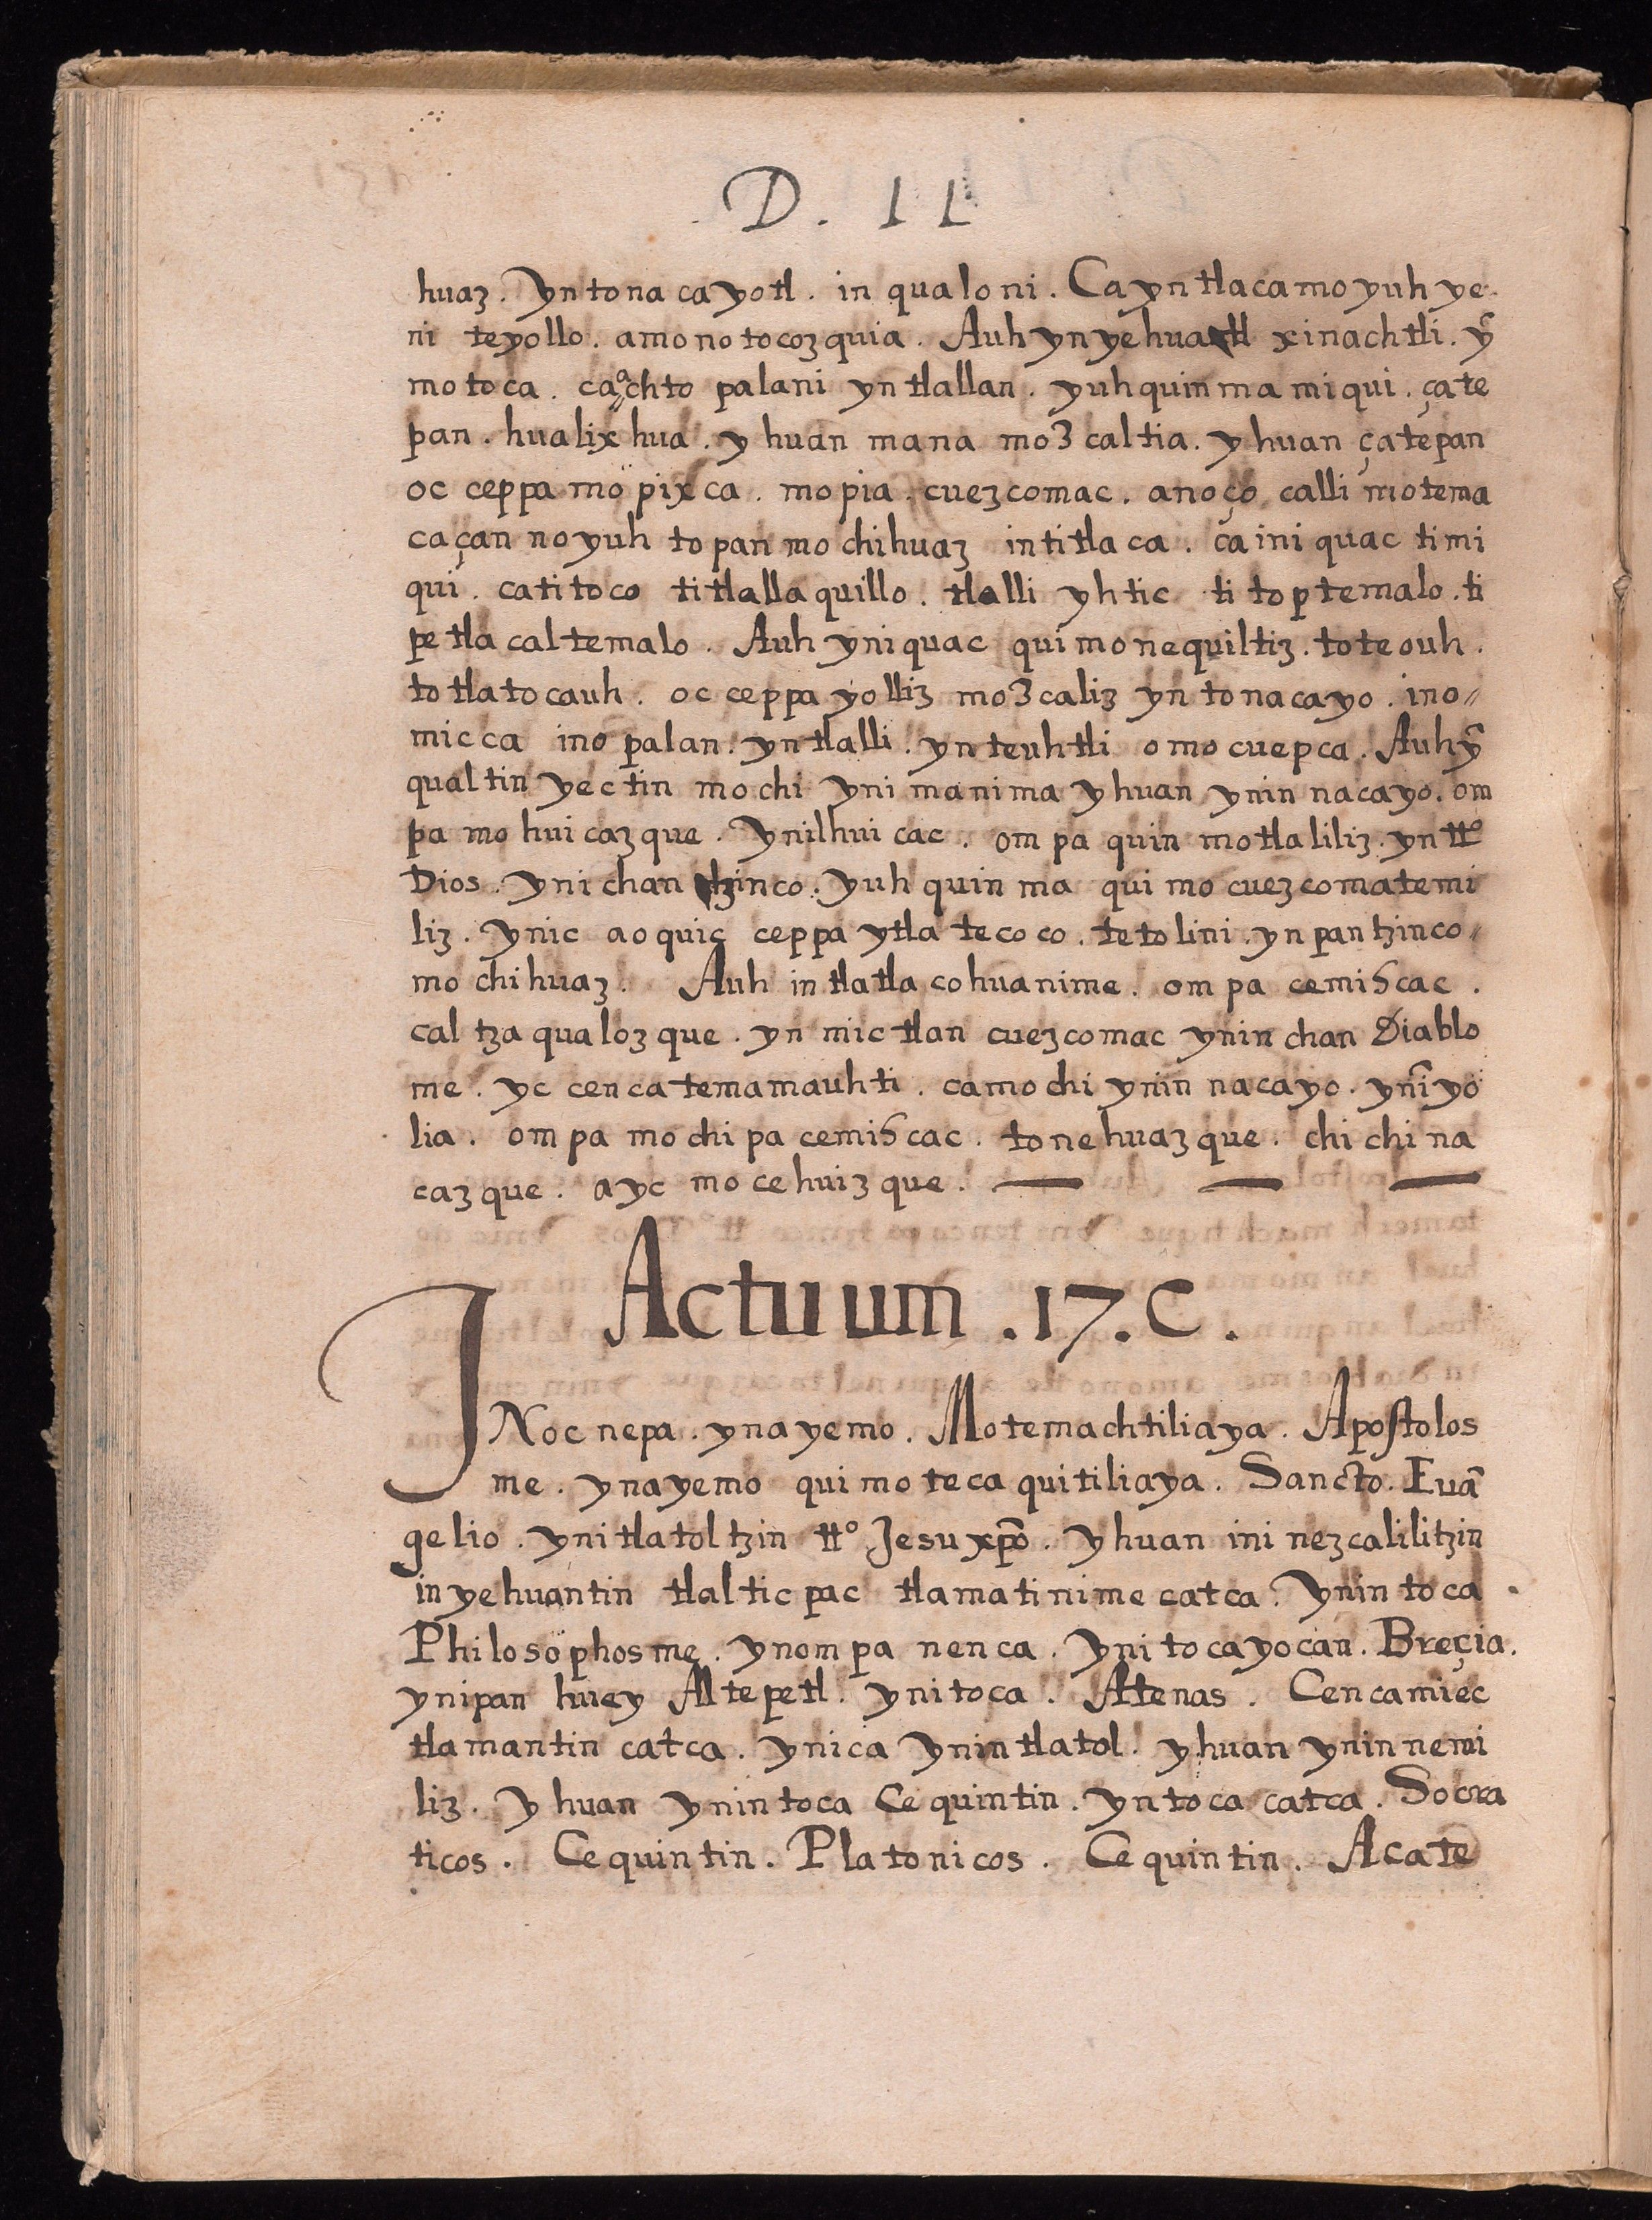 D. II
huaz. Yn tonacayotl. in qualoni. Ca yn tlacamo yuh ye
ni teyollo. amo no tocozquia. Auh yn yehuatl xinachtli. ỹ
motoca. ca achto palani yn tlallan. yuhquinma miqui. çate
pan. hualixhua. yhuan mana mo3caltia. yhuan çatepan
oc ceppa mopixca. mopia. cuezcomac. anoço calli motema
ca çan no yuh topan mochihuaz in titlaca. ca iniquac timi
qui. ca titoco titlallaquillo. tlalli yhtic titoptemalo. ti
petlacaltemalo. Auh yniquac quimonequiltiz. toteouh.
totlatocauh. oc ceppa yolliz mo3caliz yn tonacayo. in o〃
micca in opalan. yn tlalli. yn teuhtli omocuepca. Auh ỹ
qualtin yectin mochi yni manima yhuan ynin nacayo. om
pa mohuicazque. Ynilhuicac. ompa quinmotlaliliz. yn tt͞o
Dios. ynichantzinco. yuhquinma quimocuezcomatemi
liz. ynic aoquic ceppa ytla tecoco. tetolini. ynpantzinco〃
mochihuaz. Auh in tlatlacohuanime. ompa cemiscac.
caltzaqualozque. yn mictlan cuezcomac ynin chan Diablo
me. yc cenca temamauhti. ca mochi ynin nacayo. yñiyo
lia. ompa mochipa cemiscac. tonehuazque. chichina
cazque. ayc mocehuizque.
Actuum. 17. C.
INoc nepa. ynayemo. Motemachtiliaya. Apostolos
me. ynayemo quimotecaquitiliaya. Sancto. Euã
gelio. ynitlatoltzin tt͞o Jesu xp͞o. yhuan ini nezcalilitzin
in yehuantin tlalticpac tlamatinime catca. Ynin toca
Philosophosme. ynompa nenca. ynitocayocan. Breçia.
ynipan huey Altepetl. ynitoca. Atenas. Cenca miec
tlamantin catca. ynica ynin tlatol. yhuan ynin nemi
liz. yhuan ynin toca Cequintin. yntoca catca. Socra
ticos. Cequintin. Platonicos. Cequintin. Acate